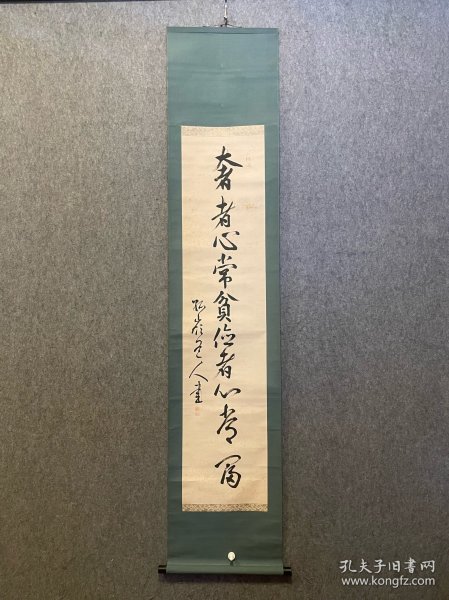 奢者心常貧儉者心常富
道人書
孔夫子旧书网
www.kongfz.com